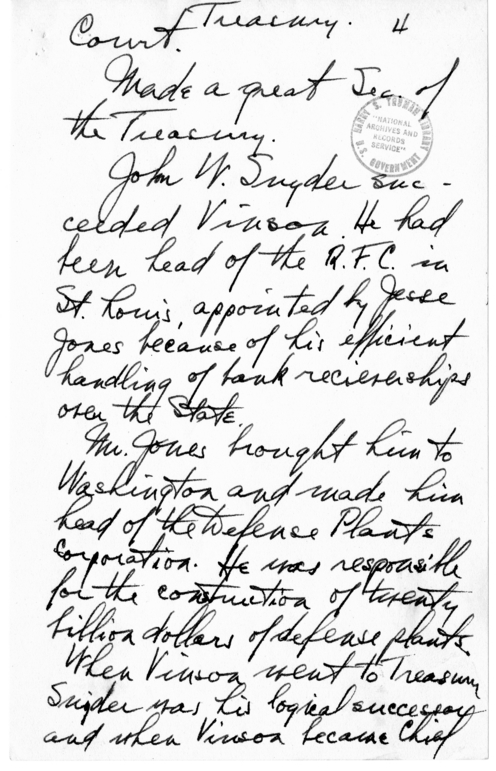 Treasury. 4
Court.
Made a great Sec. of
the Treasury.
HARRY S. TRUMAN LIBRARY
"NATIONAL
ARCHIVES AND
RECORDS
SERVICE"
U.S. GOVERNMENT
John W. Snyder suc-
ceeded Vinson. He had
been head of the R.F.C. in
St. Louis, appointed by Jesse
Jones because of his efficient
handling of bank recieverships
over the State.
Mr. Jones brought him to
Washington and made him
head of the Defense Plants
Corporation. He was responsible
for the construction of twenty
billion dollars of defense plants.
When Vinson went to Treasury
Snyder was his logical successor
and when Vinson became Chief